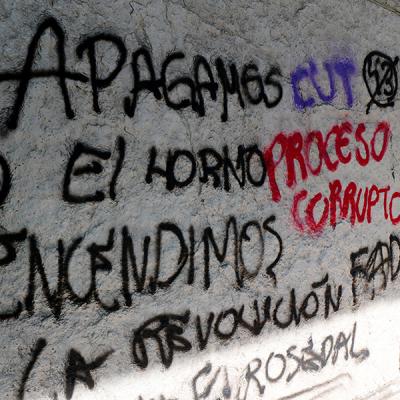 APAGAMOS CUT
EL HORNO PROCESO
CORRUPTO
ENCENDIMOS
LA REVOLUCIÓN FAD
EL ROSEDAL